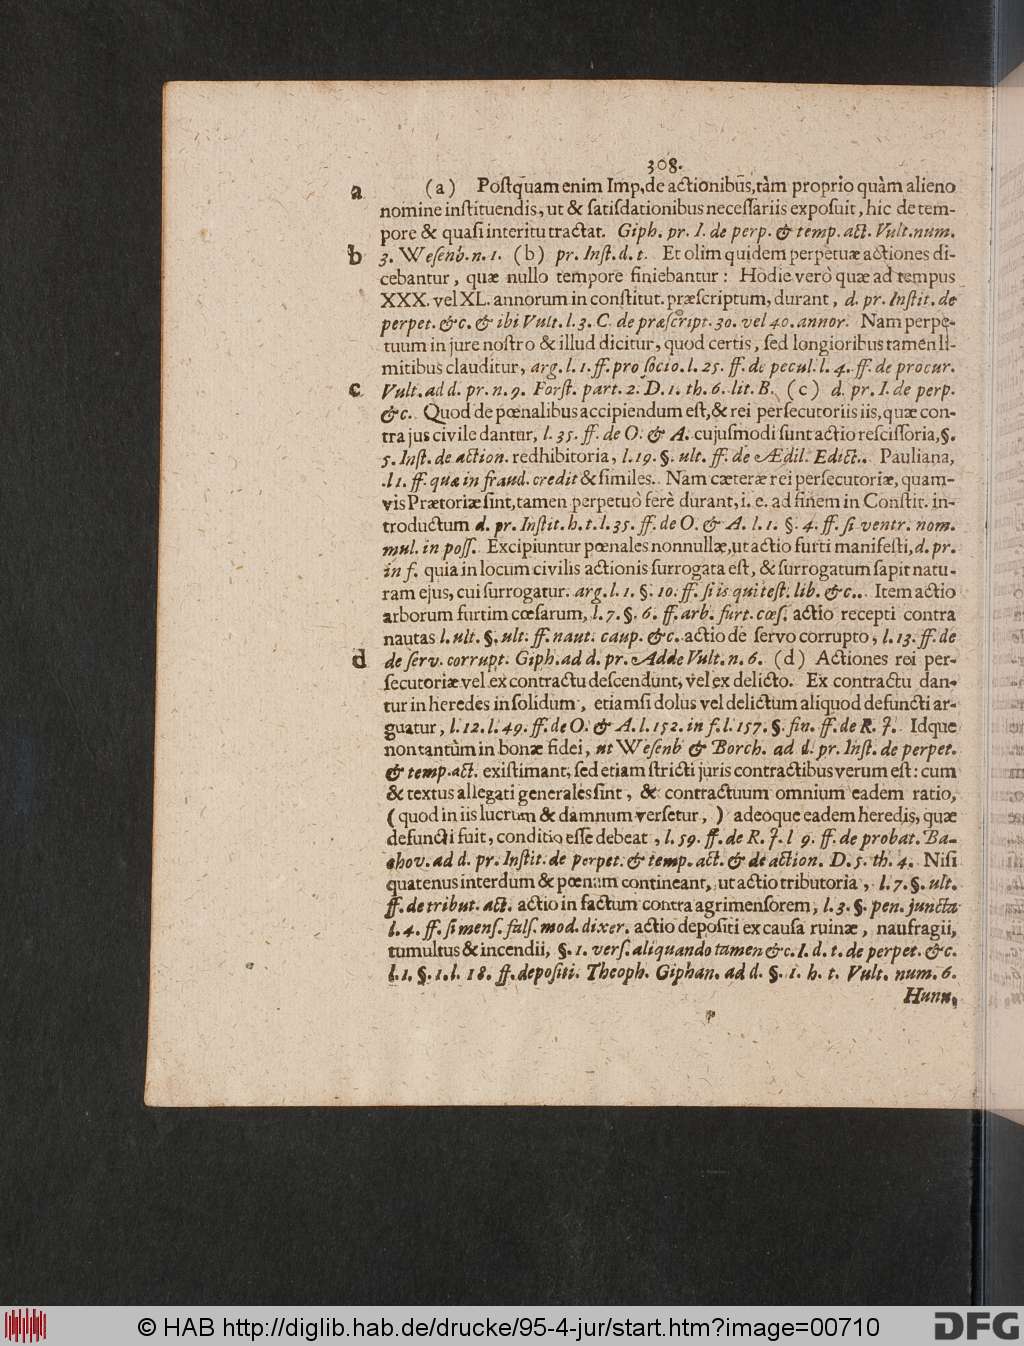 308.
a (a) Postquam enim Imp. de actionibus, tàm proprio quàm alieno
nomine instituendis, ut & satisdationibus necessariis exposuit, hic de tem-
pore & quasi interitu tractat. Giph. pr. I. de perp. & temp. act. Vult. num.
b 3. Wesenb. n. 1. (b) pr. Inst. d. t. Et olim quidem perpetuæ actiones di-
cebantur, quæ nullo tempore finiebantur: Hodie verò quæ ad tempus
XXX. vel XL. annorum in constitut. præscriptum, durant, d. pr. Instit. de
perpet. &c. & ibi Vult. l. 3. C. de præscript. 30. vel 40. annor. Nam perpe-
tuum in jure nostro & illud dicitur, quod certis, sed longioribus tamen li-
mitibus clauditur, arg. l. 1. ff. pro socio. l. 25. ff. de pecul. l. 4. ff. de procur.
c Vult. ad d. pr. n. 9. Forst. part. 2. D. 1. th. 6. lit. B. (c) d. pr. I. de perp.
&c. Quod de pœnalibus accipiendum est, & rei persecutoriis iis, quæ con-
tra jus civile dantur, l. 35. ff. de O. & A. cujusmodi sunt actio rescissoria, §.
5. Inst. de action. redhibitoria, l. 19. §. ult. ff. de Ædil. Edict.. Pauliana,
l 1. ff. quæ in fraud. credit & similes.. Nam cæteræ rei persecutoriæ, quam-
vis Prætoriæ sint, tamen perpetuò ferè durant, i. e. ad finem in Constit. in-
troductum d. pr. Instit. h. t. l. 35. ff. de O. & A. l. 1. §. 4. ff. si ventr. nom.
mul. in poss. Excipiuntur pœnales nonnullæ, ut actio furti manifesti, d. pr.
in f. quia in locum civilis actionis surrogata est, & surrogatum sapit natu-
ram ejus, cui surrogatur. arg. l. 1. §. 10. ff. si is qui test. lib. &c.. Item actio
arborum furtim cœsarum, l. 7. §. 6. ff. arb. furt. cœs. actio recepti contra
nautas l. ult. §. ult. ff. naut. caup. &c. actio de servo corrupto, l. 13. ff. de
d de serv. corrupt. Giph. ad d. pr. Adde Vult. n. 6. (d) Actiones rei per-
secutoriæ vel ex contractu descendunt, vel ex delicto. Ex contractu dan-
tur in heredes in solidum, etiamsi dolus vel delictum aliquod defuncti ar-
guatur, l. 12. l. 49. ff. de O. & A. l. 152. in f. l. 157. §. fin. ff. de R. J. Idque
non tantùm in bonæ fidei, ut Wesenb & Borch. ad d. pr. Inst. de perpet.
& temp. act. existimant, sed etiam stricti juris contractibus verum est: cum
& textus allegati generales sint, & contractuum omnium eadem ratio,
(quod in iis lucrum & damnum versetur,) adeoque eadem heredis, quæ
defuncti fuit, conditio esse debeat, l. 59. ff. de R. J. l 9. ff. de probat. Ba-
chov. ad d. pr. Instit. de perpet. & temp. act. & de action. D. 5. th. 4. Nisi
quatenus interdum & pœnam contineant, ut actio tributoria, l. 7. §. ult.
ff. de tribut. act. actio in factum contra agrimensorem, l. 3. §. pen. juncta
l. 4. ff. si mens. fals. mod. dixer. actio depositi ex causa ruinæ, naufragii,
tumultus & incendii, §. 1. vers. aliquando tamen &c. I. d. t. de perpet. &c.
l. 1. §. 1. l. 18. ff. depositi. Theoph. Giphan. ad d. §. 1. h. t. Vult. num. 6.
Hunn,
© HAB http://diglib.hab.de/drucke/95-4-jur/start.htm?image=00710
DFG